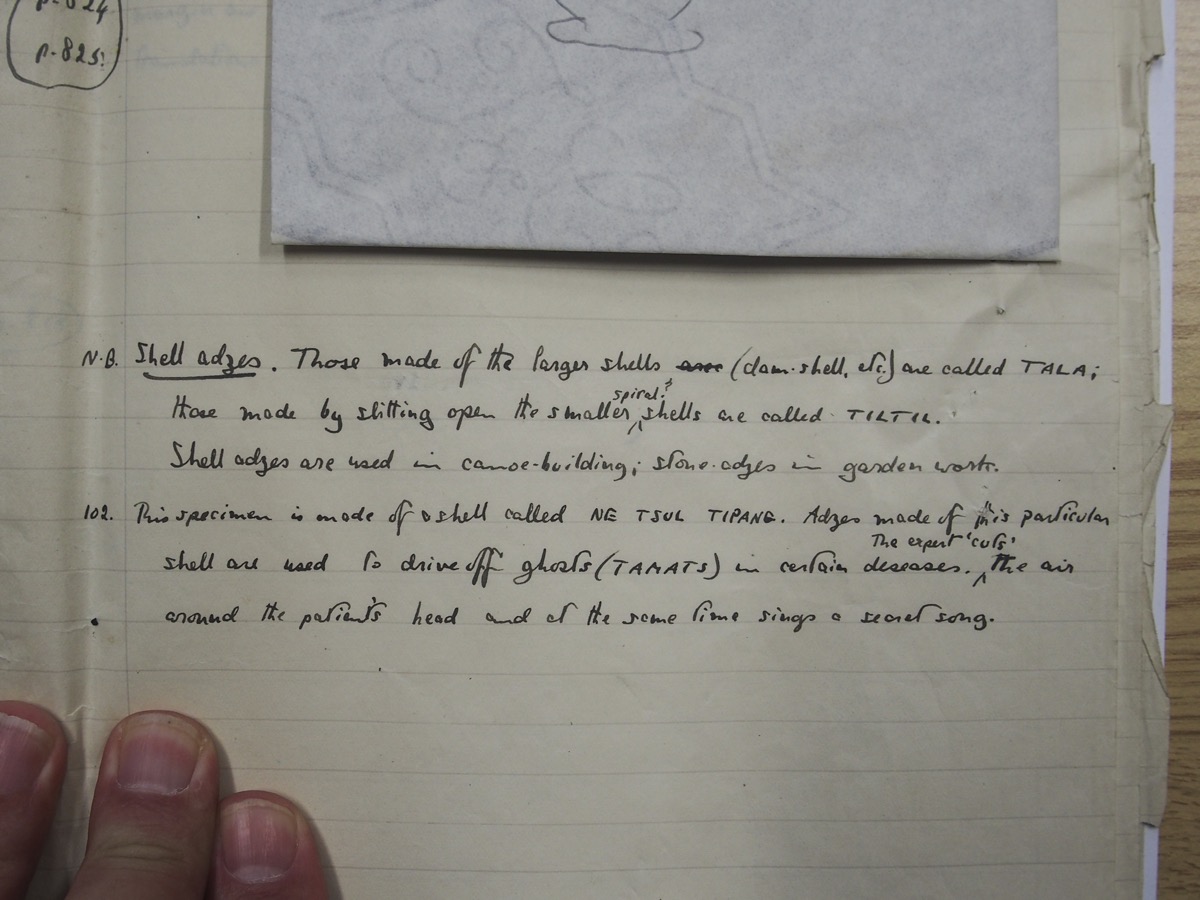 p.824
p.825.
N.B. Shell adzes. Those made of the larger shells are (clam-shell, etc.) are called TALA;
those made by slitting open the smaller spiral? shells are called TILTIL.
Shell adzes are used in canoe-building; stone-adzes in garden work.
102. This specimen is made of a shell called NE TSUL TIPANG. Adzes made of this particular
shell are used to drive off ghosts (TAMATS) in certain deseases. The expert 'cuts' the air
around the patient's head and at the same time sings a secret song.